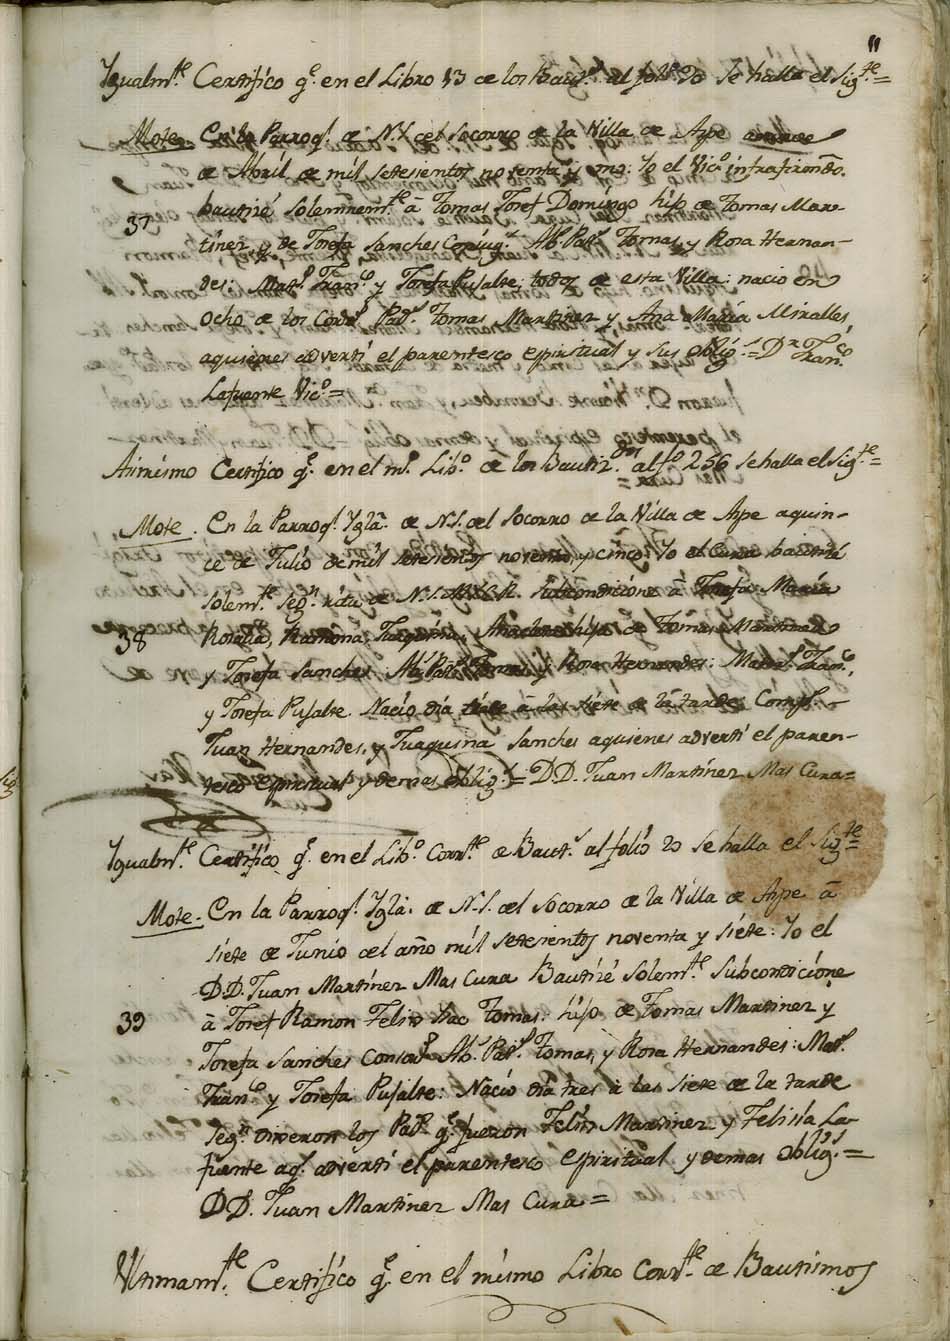 11
Ygualmte. Certifico qe. en el Libro 13 de los Bauts. al folo. 20 se halla el Sigte.=
Mote. En la Parroql. de N.S. del Socorro de la Villa de Aspe
de Abril de mil setesientos noventa y uno: Yo el Vico. infrafirmdo.
37 bautizé solemnemte. â Tomas Josef Domingo hijo de Tomas Mar
tinez, y de Josefa Sanches Conjugs. Abs. Pats. Tomas, y Rosa Hernan-
des: Mats. Franco. y Josefa Pujalte; todos de esta Villa: nacio en
ocho de los Corrs. Pads. Tomas Martinez y Ana Maria Miralles,
aquienes advertí el parentesco espiritual y sus oblig.s = Dr. Franco.
Lafuente Vico.=
Asimismo Certifico qe. en el mo. Libo. de los Bautiz. al fo. 256 se halla el Sigte.=
Mote. En la Parroql. Yglã. de N.S. del Socorro de la Villa de Aspe aquin-
ce de Julio de mil setesientos noventa, y cinco: Yo el Cura bautizé
solemte. segn. ritu de N.S.M.Y.C.R. subcondicione â Josefa Maria
38 Rosalia, Ramona, Juaquina, hija de Tomas Martinez
y Josefa Sanches: Abs. Pats. Tomas y Rosa Hernandes: Mats. Franco.
y Josefa Pujalte. Nacio dia trese â las siete de la tarde: Comps.
Juan Hernandes, y Juaquina Sanches aquienes advertí el paren-
tesco espiritual y demas oblig.s= D.D. Juan Martinez Mas Cura=
Ygualmte. Certifico qe. en el Libo. Corrte. de Bauts. al folio 20 se halla el Sigte.=
Mote. En la Parroql. Yglã. de N.S. del Socorro de la Villa de Aspe â
siete de Junio del año mil setesientos noventa y siete: Yo el
D.D. Juan Martinez Mas Cura Bautizé solemte. subcondicione
39 â Josef Ramon Felis Ysac Tomas: hijo de Tomas Martinez y
Josefa Sanches Consors. Abs. Pats. Tomas, y Rosa Hernandes: Mats.
Franco. y Josefa Pujalte: Nacio dia tres â las siete de la tarde
segn. dixeron los Pads. qe. fueron Felis Martinez y Felisia La-
fuente aqs. advertí el parentesco espiritual y demas oblig.s=
D.D. Juan Martinez Mas Cura=
Ultimamte. Certifico qe. en el mismo Libro Corrte. de Bautismos